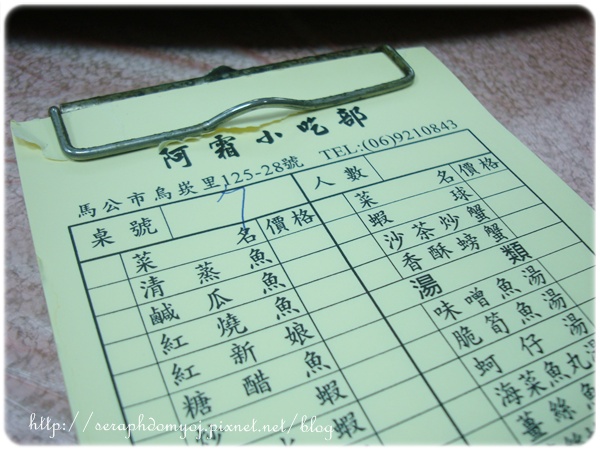 阿霜小吃部
馬公市烏崁里125-28號 TEL:(06)9210843
桌號 7 人數
菜名 價格
清蒸魚
鹹瓜魚
紅燒魚
紅新娘
糖醋魚
蝦
蝦
菜名 價格
蝦球
沙茶炒蟹
香酥螃蟹
湯類
味噌魚湯
脆筍魚湯
蚵仔湯
海菜魚丸湯
薑絲魚
http://seraphdomyoj.pixnet.net/blog